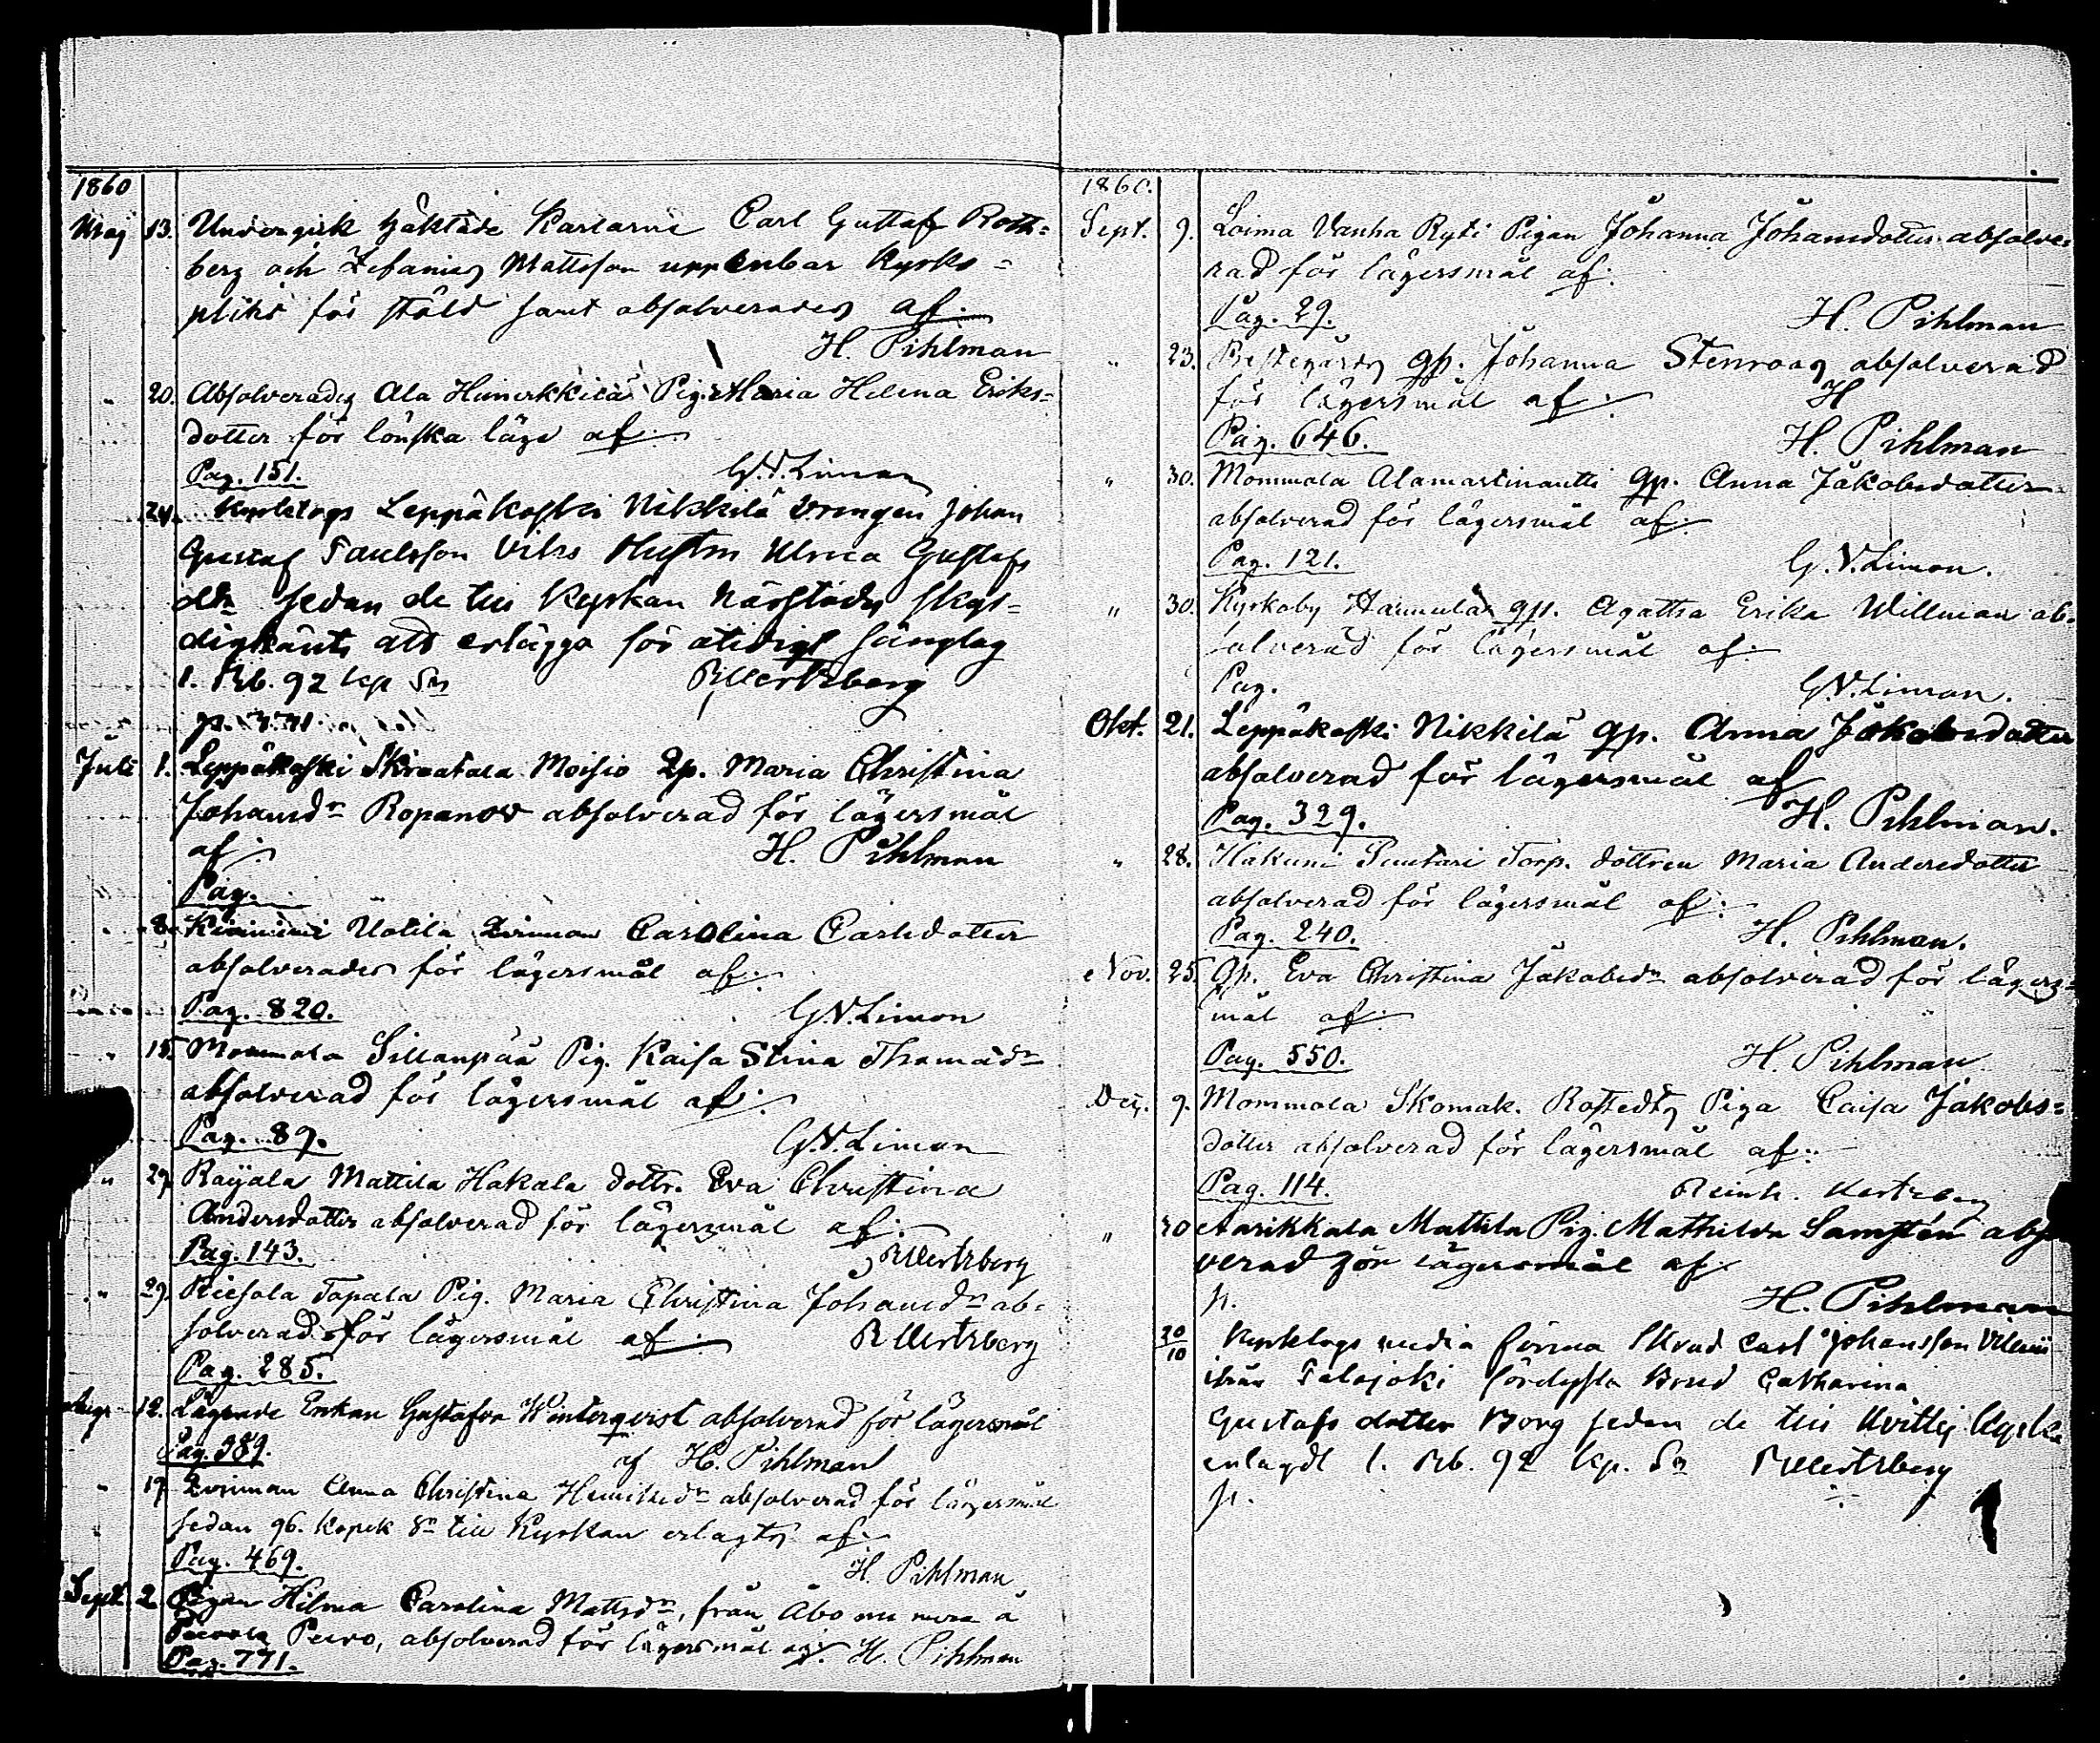 1860
Maj 13. Undergick häktade Karlarne Carl Gustaf Roth=
berg och Zefanias Mattsson uppenbar Kyrko=
plikt för stöld samt absolverades af:
H. Pihlman
" 20. Absolverades Ala Heinerkkilä Pig. Maria Helena Eriks=
dotter för lönska läge af:
Pag. 151. G. V. Limon
24. Kyrktogs Leppäkoski Nikkilä Drengen Johan
Gustaf Paulsson Hustru Ulrica Gustafs
dtr sedan de till Kyrkan skyl=
att erlägga för otidigt sänglag
1. Rb. 92 kp Sr R Mertzberg
p.
Juli 1. Leppäkoski Skraatala Moisio qp. Maria Christina
Johansdr Ropanov absolverad för lägersmål
af: H. Pihlman
Pag.
" 8. Uotila Qvinnan Carolina Carlsdotter
absolverades för lägersmål af:
Pag. 820. G. V. Limon
" 15. Mommola Sillanpää Pig. Kaisa Stina Thomasdr
absolverad för lägersmål af:
Pag. 89. G. V. Limon
" 29. Rayala Mattila Hakala dottr. Eva Christina
Andersdotter absolverad för lägersmål af:
Pag. 143. R Mertzberg
" 29. Tapala Pig. Maria Christina Johansdr ab=
solverad för lägersmål af: R Mertzberg
Pag. 285.
Aug. 12. Enkan Gustafva Winterqvist absolverad för lägersmål
Pag. 389. af H. Pihlman
" 19. Qvinnan Anna Christina Henriksdr absolverad för lägersmål
sedan 96. Kopek Sr till Kyrkan erlagts af:
Pag. 469. H. Pihlman
Sept. 2. Pigan Hilma Carolina Mattsdr, från Åbo nu mera å
Peuro, absolverad för lägersmål af: H. Pihlman
Pag. 771.
1860.
Sept. 9. Loima Vanha Ryti Pigan Johanna Johansdotter absolve=
rad för lägersmål af:
Pag. 29. H. Pihlman
" 23. Prestegårds qp. Johanna Stenroos absolverad
för lägersmål af: H
Pag. 646. H. Pihlman
" 30. Mommola Alamartinantti qp. Anna Jakobsdotter
absolverad för lägersmål af:
Pag. 121. G. V. Limon.
" 30. Kyrkoby Hannula qp. Agatha Erika Willman ab=
solverad för lägersmål af:
Pag. G. V. Limon.
Okt. 21. Leppäkoski Nikkilä qp. Anna Jakobsdotter
absolverad för lägersmål af
Pag. 329. H. Pihlman.
" 28. Hakuni Puntari Torp. dottren Maria Andersdotter
absolverad för lägersmål af:
Pag. 240. H. Pihlman.
Nov. 25. Qp. Eva Christina Jakobsdr absolverad för lägers=
mål af:
Pag. 550. H. Pihlman
Dec. 9. Mommola Skomak. Rostedts Piga Caisa Jakobs=
dotter absolverad för lägersmål af:
Pag. 114. Reinh. Mertzberg
" 30 Aarikkala Mattila Pig. Mathilda Samstén abso
verad för lägersmål af
p. H. Pihlman
30/10 Kyrktogs Carl Johansson
ifrån Palojoki Brud Catharina
Gustafs dotter Borg sedan de till Kyrka
erlagdt 1. Rb. 92 kp. Sr R Mertzberg
p.